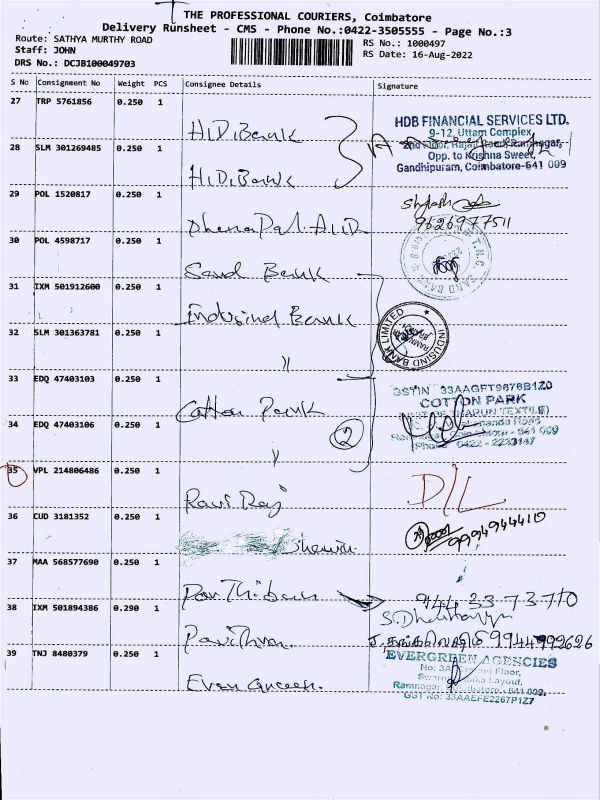 THE PROFESSIONAL COURIERS, Coimbatore
Delivery Runsheet - CMS - Phone No.:0422-3505555 - Page No.:3
Route: SATHYA MURTHY ROAD
RS No.: 1000497
Staff: JOHN
RS Date: 16-Aug-2022
DRS No.: DCJB100049703
S No Consignment No Weight PCS Consignee Details Signature
27 TRP 5761856 0.250 1
HDB FINANCIAL SERVICES LTD.
9-12, Uttam Complex,
Opp. to Krishna Sweet,
Gandhipuram, Coimbatore-641 009
28 SLM 301269485 0.250 1
29 POL 1520817 0.250 1
9626977511
30 POL 4598717 0.250 1
Sand Bank
31 IXM 501912600 0.250 1
Indusind Bank
INDUSIND BANK LIMITED
32 SLM 301363781 0.250 1
"
33 EDQ 47403103 0.250 1
GSTIN 33AAGFT9876B1Z0
COTTON PARK
Cotton Park
34 EDQ 47403106 0.250 1
2
Phone: 0422 - 2233147
"
35 VPL 214806486 0.250 1
Ravi Raj
D/L
36 CUD 3181352 0.250 1
9994944410
37 MAA 568577690 0.250 1
944 33-73-710
38 IXM 501894386 0.290 1
Pavithra.
9944999626
39 TNJ 8480379 0.250 1
EVERGREEN AGENCIES
Ramnagar, Coimbatore - 641 009.
GST No: 33AAEFE2267P1Z7
Ever Green.